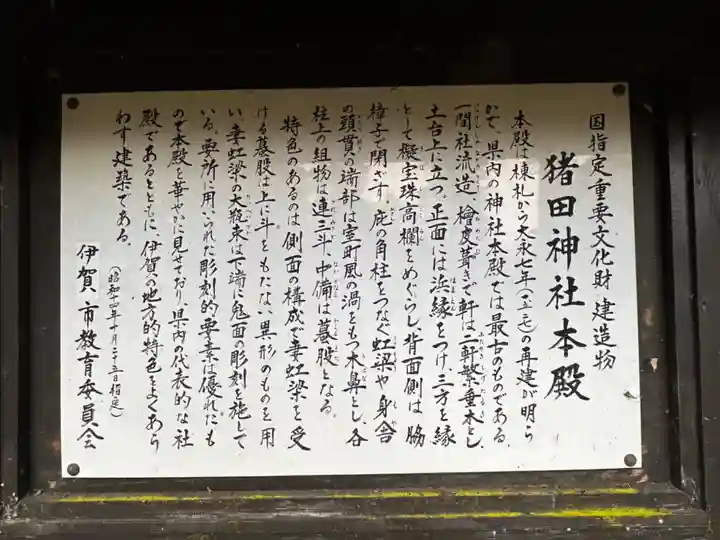 国指定重要文化財 建造物
猪田神社本殿
本殿は棟札から大永七年(一五二七)の再建が明ら
かで、県内の神社本殿では最古のものである。
一間社流造、檜皮葺きで軒は二軒繁垂木とし、
土台上に立つ。正面には浜縁をつけ三方を縁
として擬宝珠高欄をめぐらし、背面側は脇
障子で閉ざす。庇の角柱をつなぐ虹梁や身舎
の頭貫の端部は室町風の渦をもつ木鼻とし、各
柱上の組物は連三斗、中備は蟇股となる。
特色のあるのは側面の構成で妻虹梁を受
ける蟇股は上に斗をもたない異形のものを用
い、妻虹梁の大瓶束は下端に鬼面の彫刻を施して
いる。要所に用いられた彫刻的要素は優れたも
ので本殿を華やかに見せており、県内の代表的な社
殿であるとともに、伊賀の地方的特色をよくあら
わす建築である。
(昭和四年十月二十五日指定)
伊賀市教育委員会